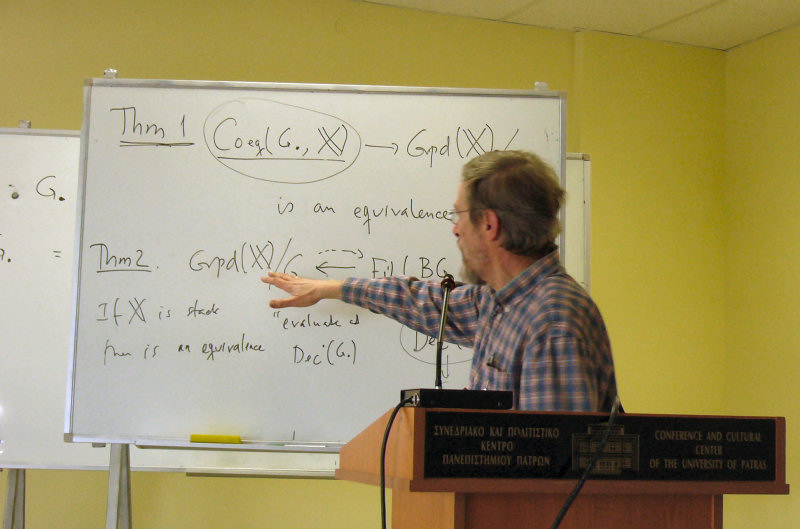 Thm 1 Coeq(G., 𝕏) → Grpd(𝕏)/
is an equivalence
Thm 2. Grpd(𝕏)/G ⇠⇢ Fib(BG
If 𝕏 is stack "evaluate at
then is an equivalence Dec˙(G.) Dec˙(
G.
. =
ΣΥΝΕΔΡΙΑΚΟ ΚΑΙ ΠΟΛΙΤΙΣΤΙΚΟ
ΚΕΝΤΡΟ
ΠΑΝΕΠΙΣΤΗΜΙΟΥ ΠΑΤΡΩΝ
CONFERENCE AND CULTURAL
CENTER
OF THE UNIVERSITY OF PATRAS